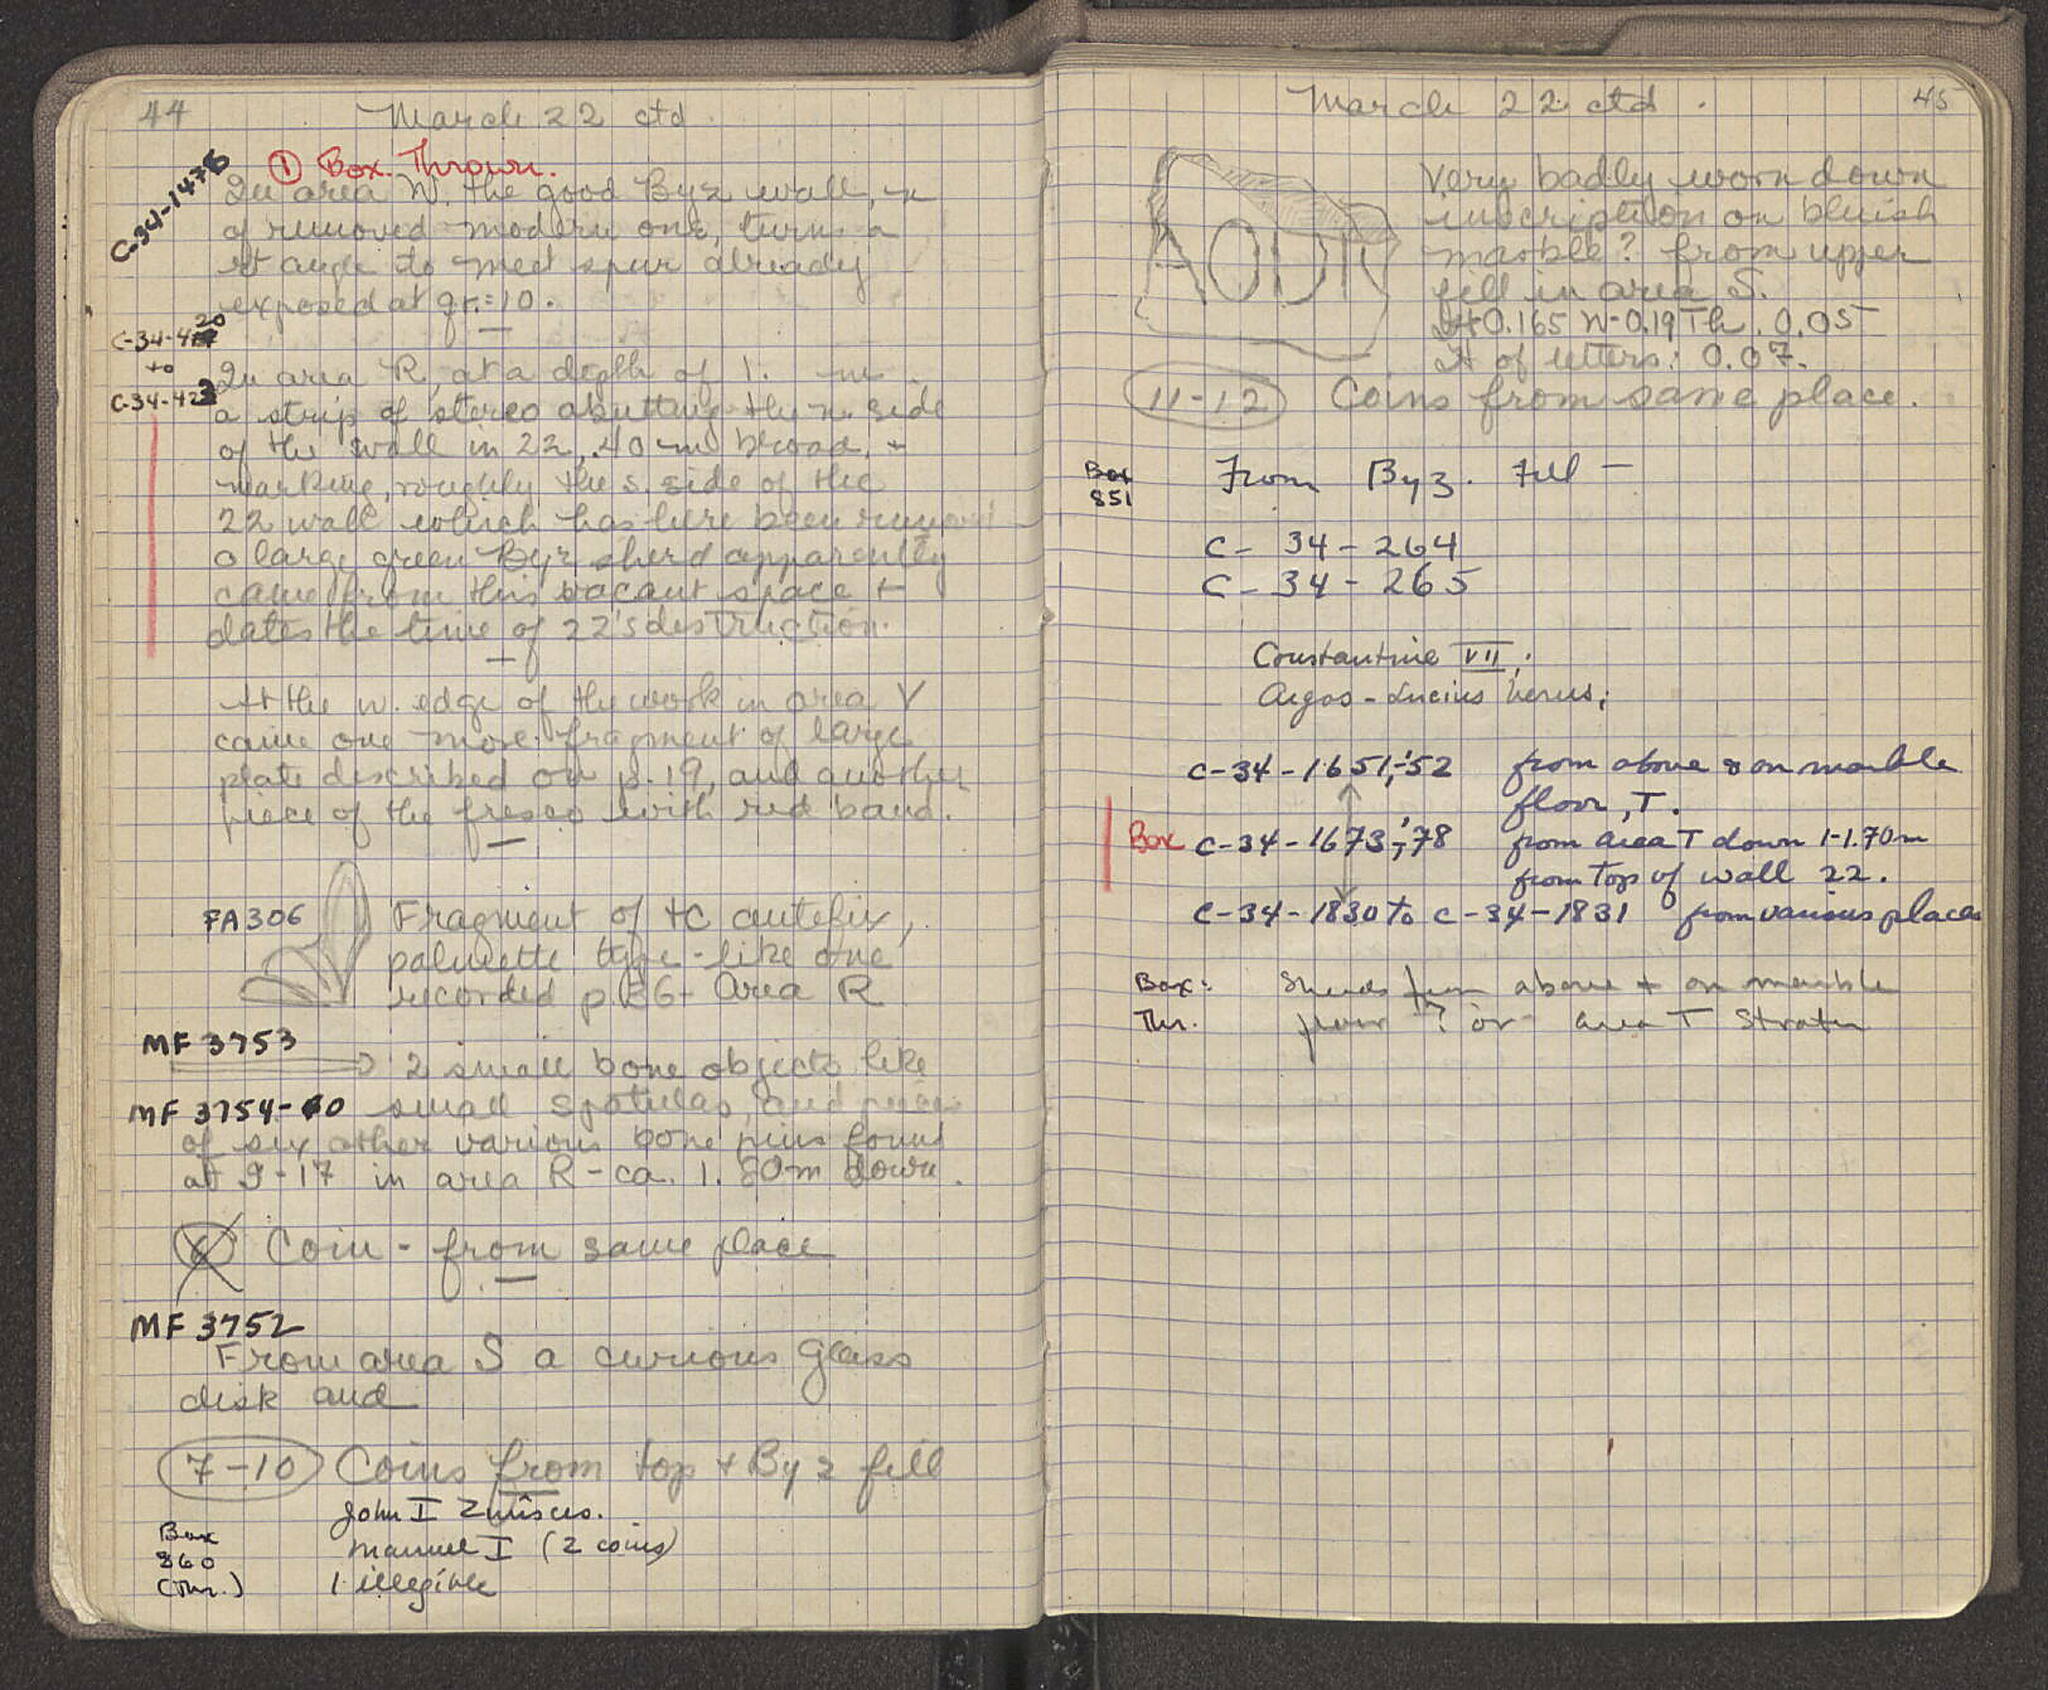 44
March 22 ctd.
① Box Thrown.
C-34-1475
In area W. the good Byz wall, n
of removed modern one, turns a
rt angle to meet spur already
exposed at gr.=10.
C-34-420
to
C-34-422
In area R, at a depth of 1. m
a strip of stereo abutting the n. side
of the wall in 22, .40 m broad, +
marking, roughly the s. side of the
22 wall which has here been removed
a large green Byz sherd apparently
came from this vacant space +
dates the time of 22's destruction.
At the w. edge of the work in area V
came one more fragment of large
plate described on p. 19, and another
piece of the fresco with red band.
FA 306
Fragment of tc antefix,
palmette type - like one
recorded p. 36 - Area R
MF 3753
2 small bone objects like
MF 3754-60 small spatulas, and pieces
of six other various bone pins found
at 9-17 in area R - ca. 1.80 m down.
6 Coin - from same place
MF 3752
From area S a curious glass
disk and
7-10 Coins from top + Byz fill
John I Zmisces.
Manuel I (2 coins)
1 illegible
Box
860
(Thr.)
March 22 ctd.
45
ΛΟΠΚ
Very badly worn down
inscription on bluish
marble? from upper
fill in area S.
Ht 0.165 W-0.19 Th. 0.05
Ht of letters: 0.07.
11-12 Coins from same place.
Box
851
From Byz. Fill —
C- 34 - 264
C- 34 - 265
Constantine VII;
Argos - Lucius Verus;
C-34-1651,-'52 from above & on marble
floor, T.
Box C-34-1673,-'78 from area T down 1-1.70 m
from top of wall 22.
C-34-1830 to C-34-1831 from various places
Box: Sherds from above + on marble
Thr. floor ? or area T strata